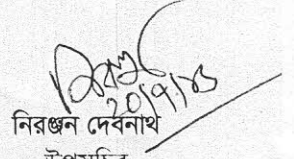 ২০/৭/১৫
নিরঞ্জন দেবনাথ
উপসচিব